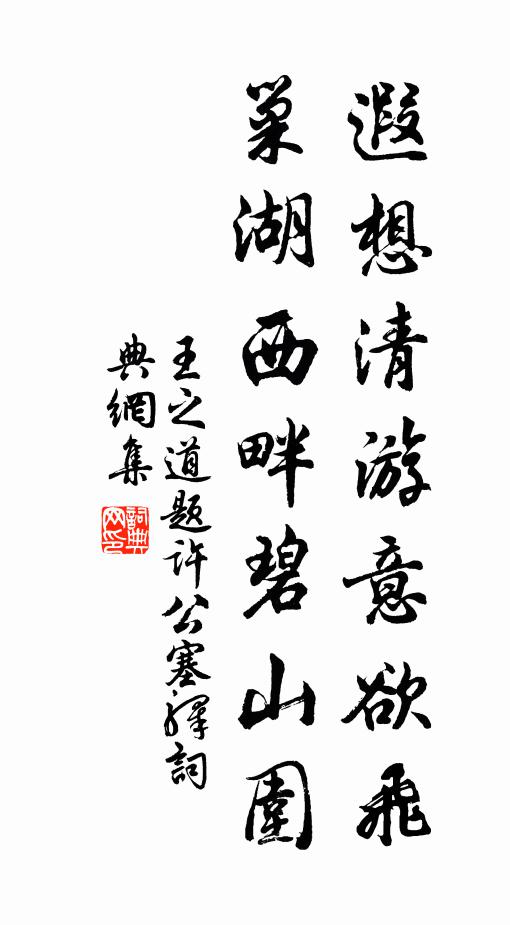 遐想清游意欲飛
巢湖西畔碧山圍
王之道題許公塞驛詞
典網集
詞典網印